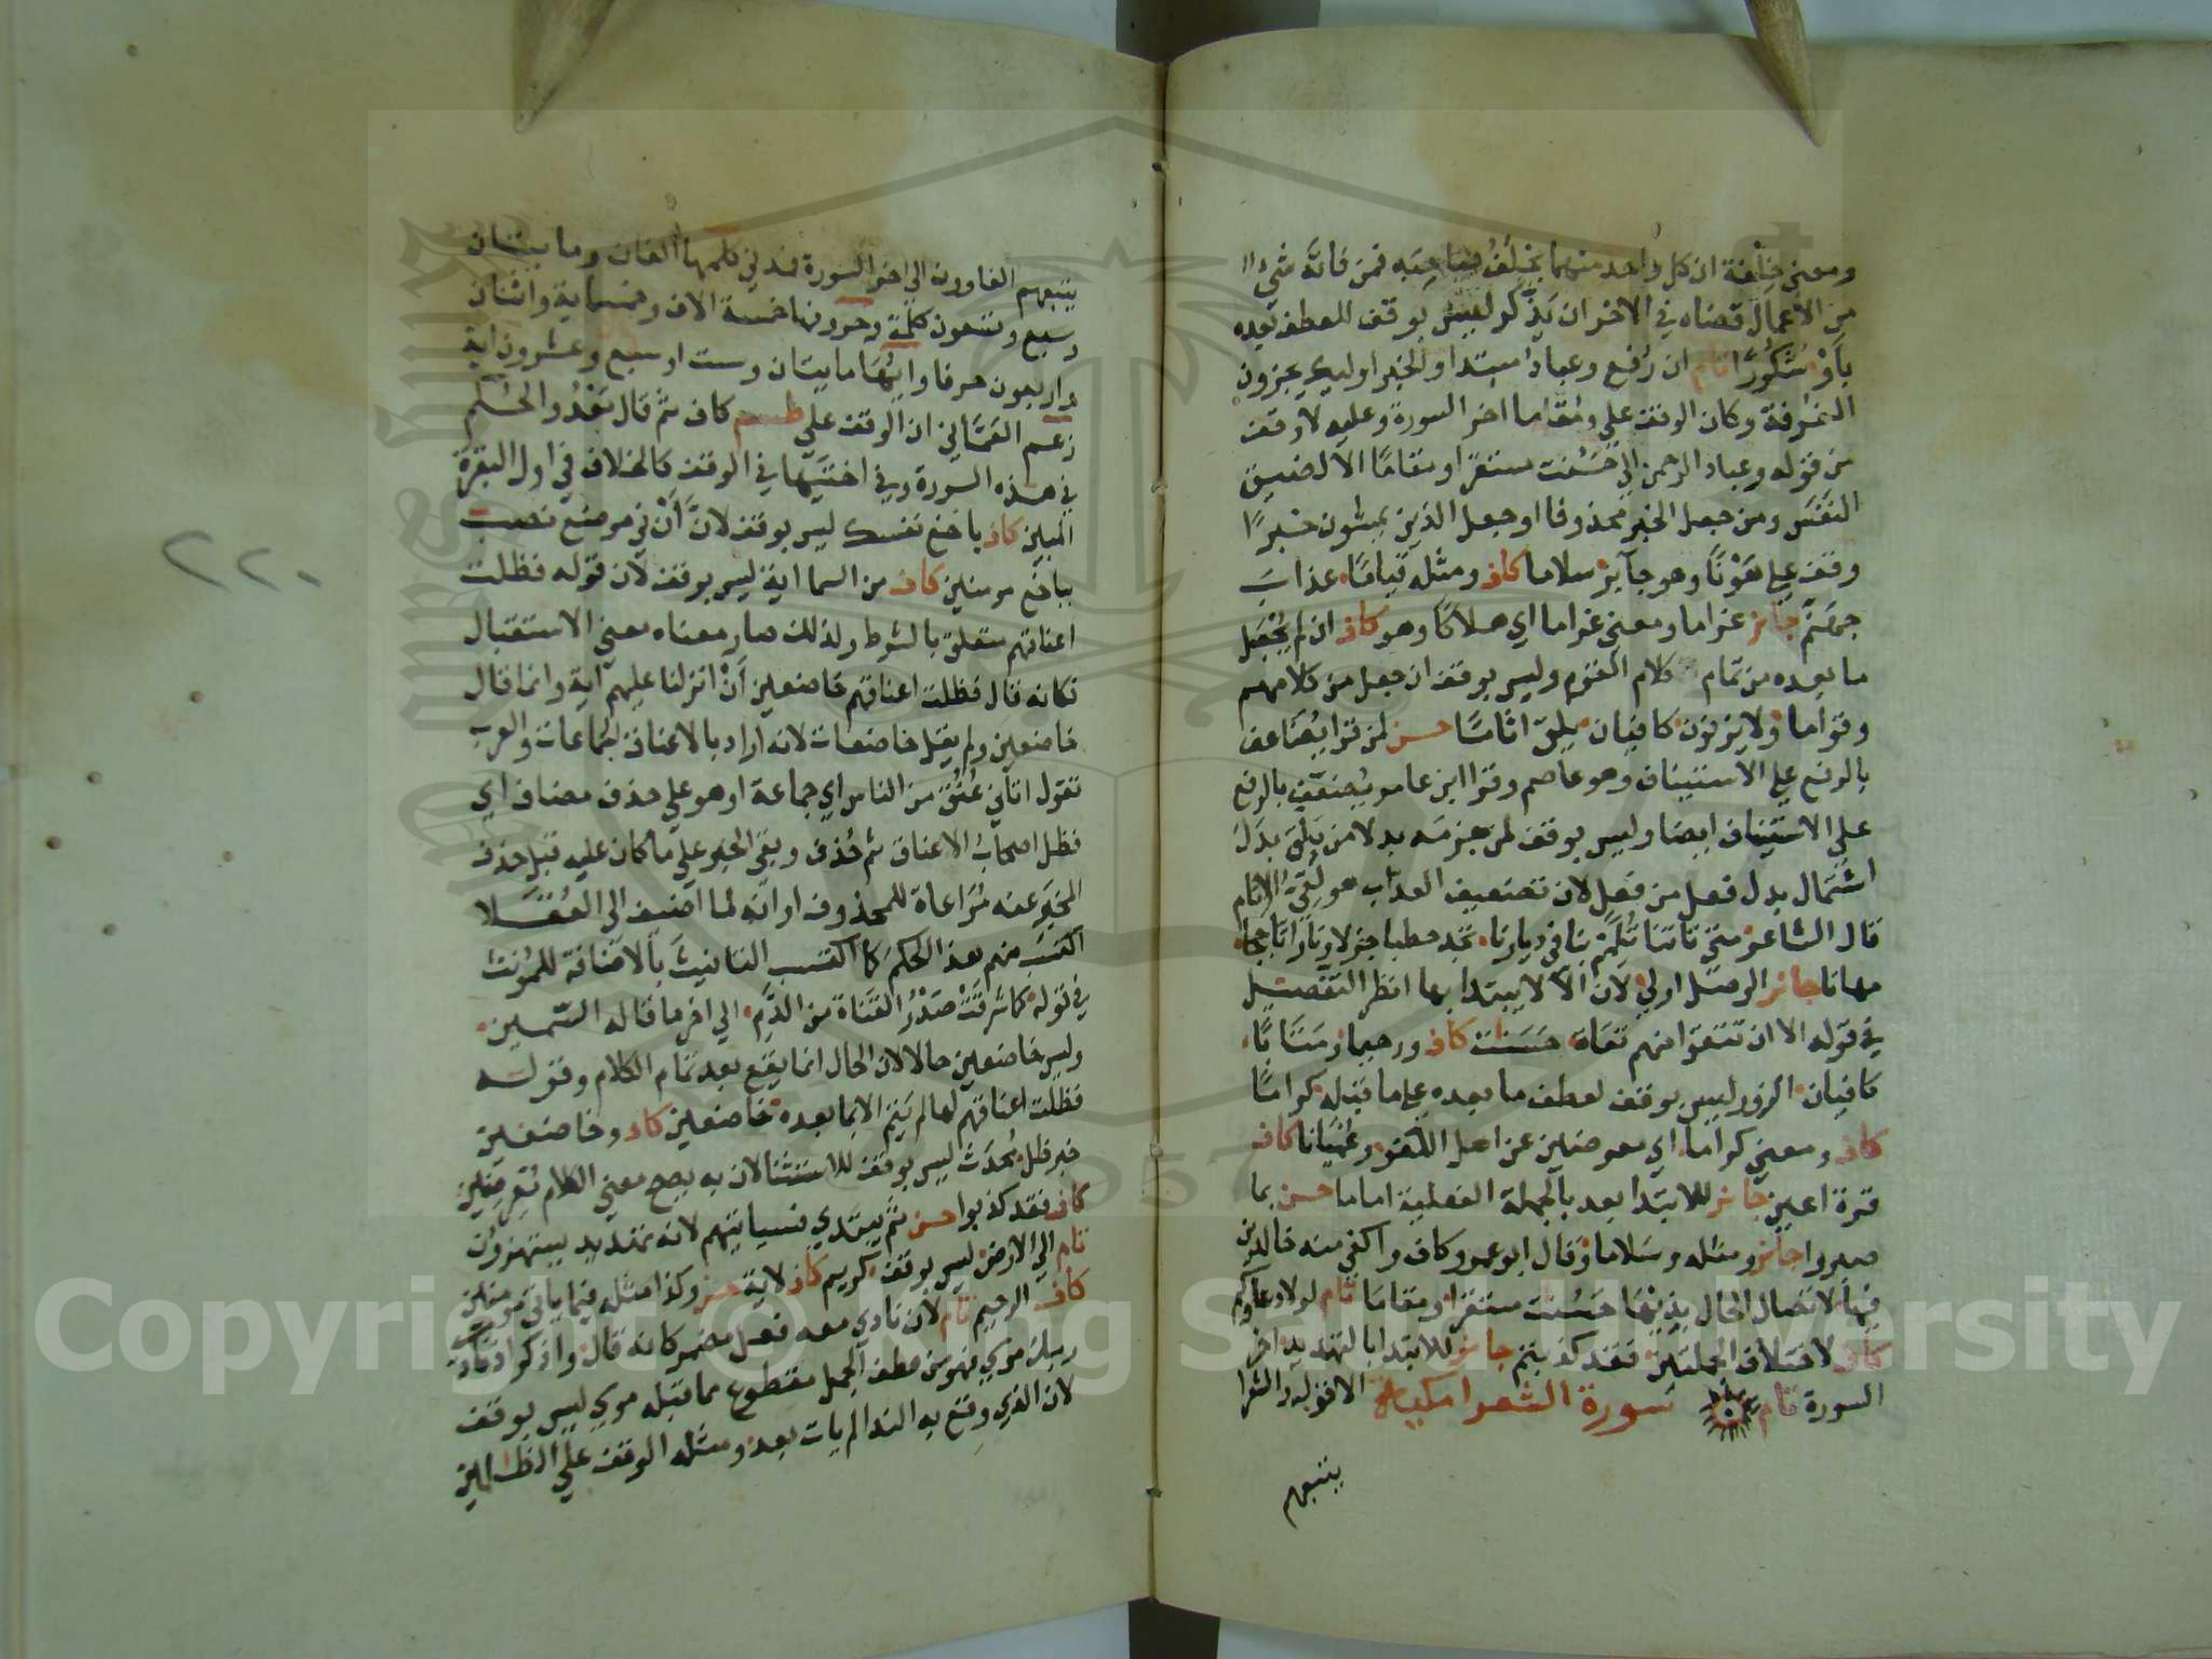 ومعنى خلفة ان كل واحد منهما يخلف صاحبه فمن فاته شيء
من الاعمال قضاه في الاخر ان يذكر ليس بوقف للعطف بعده
بأو شكورا تام ان رفع وعباد مبتدا والخبر اوليك يجزون
الغرفة وكان الوقف على ومقاما اخر السورة وعليه لا وقف
من قوله وعباد الرحمن الى حسنت مستقرا ومقاما الا لضيق
النفس ومن جعل الخبر محذوفا او جعل الذين يمشون خبرًا
وقف على هونًا وهو جآيز سلاما كاف ومثله قيامًا عذاب
جهنم جائز غراما ومعنى غراما اي هلاكا وهو كاف ان لم يجعل
ما بعده من تمام كلام القوم وليس بوقف ان جعل من كلامهم
وقواما ولا يزنون كافيان يلق اثامًا حسن لمن قرا يضاعف
بالرفع على الاستيناف وهو عاصم وقرا ابن عامر يضعف بالرفع
على الاستيناف ايضا وليس بوقف لمن جزمه بدلا من يلق بدل
اشتمال بدل فعل من فعل لان تضعيف العذاب هو لقيّ الاثام
قال الشاعر متى تاتنا تلمم بنا في ديارنا تجد حطبا جزلا ونارا تاججا
مهانا جائز الوصل اولى لان الا لا يبتدا بها انظر التفصيل
في قوله الا ان تتقوا منهم تقاة حسنات كاف ورحيما ومتابًا
كافيان الزور ليس بوقف لعطف ما بعده على ما قبله كرامًا
كاف ومعنى كراما اي معرضين عن اهل اللغو وعميانا كاف
قرة اعين جائز للابتدا بعد بالجملة الفعلية اماما حسن بما
صبروا جائز ومثله وسلاما وقال ابو عمرو كاف واكفى منه خالدين
فيها لاتصال الحال بذيها حسنت مستقرا ومقاما تام لولا دعاوكم
كاف لاختلاف الجملتين فقد كذبتم جائز للابتدا بالتهديد اخر
السورة تام سورة الشعرا مكية الا قوله والشعرا
يتبعهم
يتبعهم الغاوون الى اخر السورة فمدني كلمها الفان ومايتان
وسبع وتسعون كلمة وحروفها خمسة الاف وخمسماية واثنان
واربعون حرفا وايها مايتان وست او سبع وعشرون اية
زعم العماني ان الوقف على طسم كاف ثم قال بعد والحكم
في هذه السورة وفي اختيها في الوقف كالخلاف في اول البقرة
المبين كاف باخع نفسك ليس بوقف لان أن في موضع نصب
بباخع مومنين كاف من السما اية ليس بوقف لان قوله فظلت
اعناقهم متعلق بالشرط ولذلك صار معناه معنى الاستقبال
فكانه قال فظلت اعناقهم خاضعين أن انزلنا عليهم آية وانما قال
خاضعين ولم يقل خاضعات لانه اراد بالاعناق الجماعات والعرب
تقول اتاني عنق من الناس اي جماعة او هو على حذف مضاف اي
فظل اصحاب الاعناق ثم حذف وبقي الخبر على ما كان عليه قبل حذف
المخبر عنه مراعاة للمحذوف او انه لما اضيف الى العقلا
اكتسب منهم هذا الحكم كما اكتسب التانيث بالاضافة للمونث
في قوله كما شرقت صدر القناة من الدم الى اخر ما قاله السمين
وليس خاضعين حالا لان الحال انما يقع بعد تمام الكلام وقوله
فظلت اعناقهم لها لم يتم الا بما بعده خاضعين كاف وخاضعين
خبر فظل محدث ليس بوقف للاستثنا لان به يصح معنى الكلام معرضين
كاف فقد كذبوا حسن ثم يبتدي فسياتيهم لانه تهديد يستهزون
تام الى الارض ليس بوقف كريم كاف لاية حسن وكذا مثله فيما ياتي مومنين
كاف الرحيم تام لان نادى معه فعل مضمر كانه قال واذكر اذ نادى
ربك موسى فهو من عطف الجمل مقطوع مما قبله موسى ليس بوقف
لان الذي وقع به الندا لم يات بعد ومثله الوقف على الظالمين
٢٢٠
Copyright © King Saud University
1957